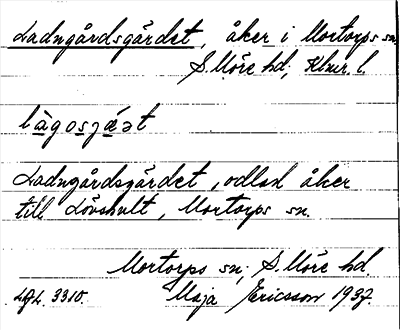 Ladngårdsgärdet, åker i Mortorps sn.
S. Möre hd; Klmr. l.
Ladngårdsgärdet, odlad åker
till Lövshult, Mortorps sn.
Mortorps sn; S. Möre hd.
LGL. 3310. Maja Ericsson 1937.